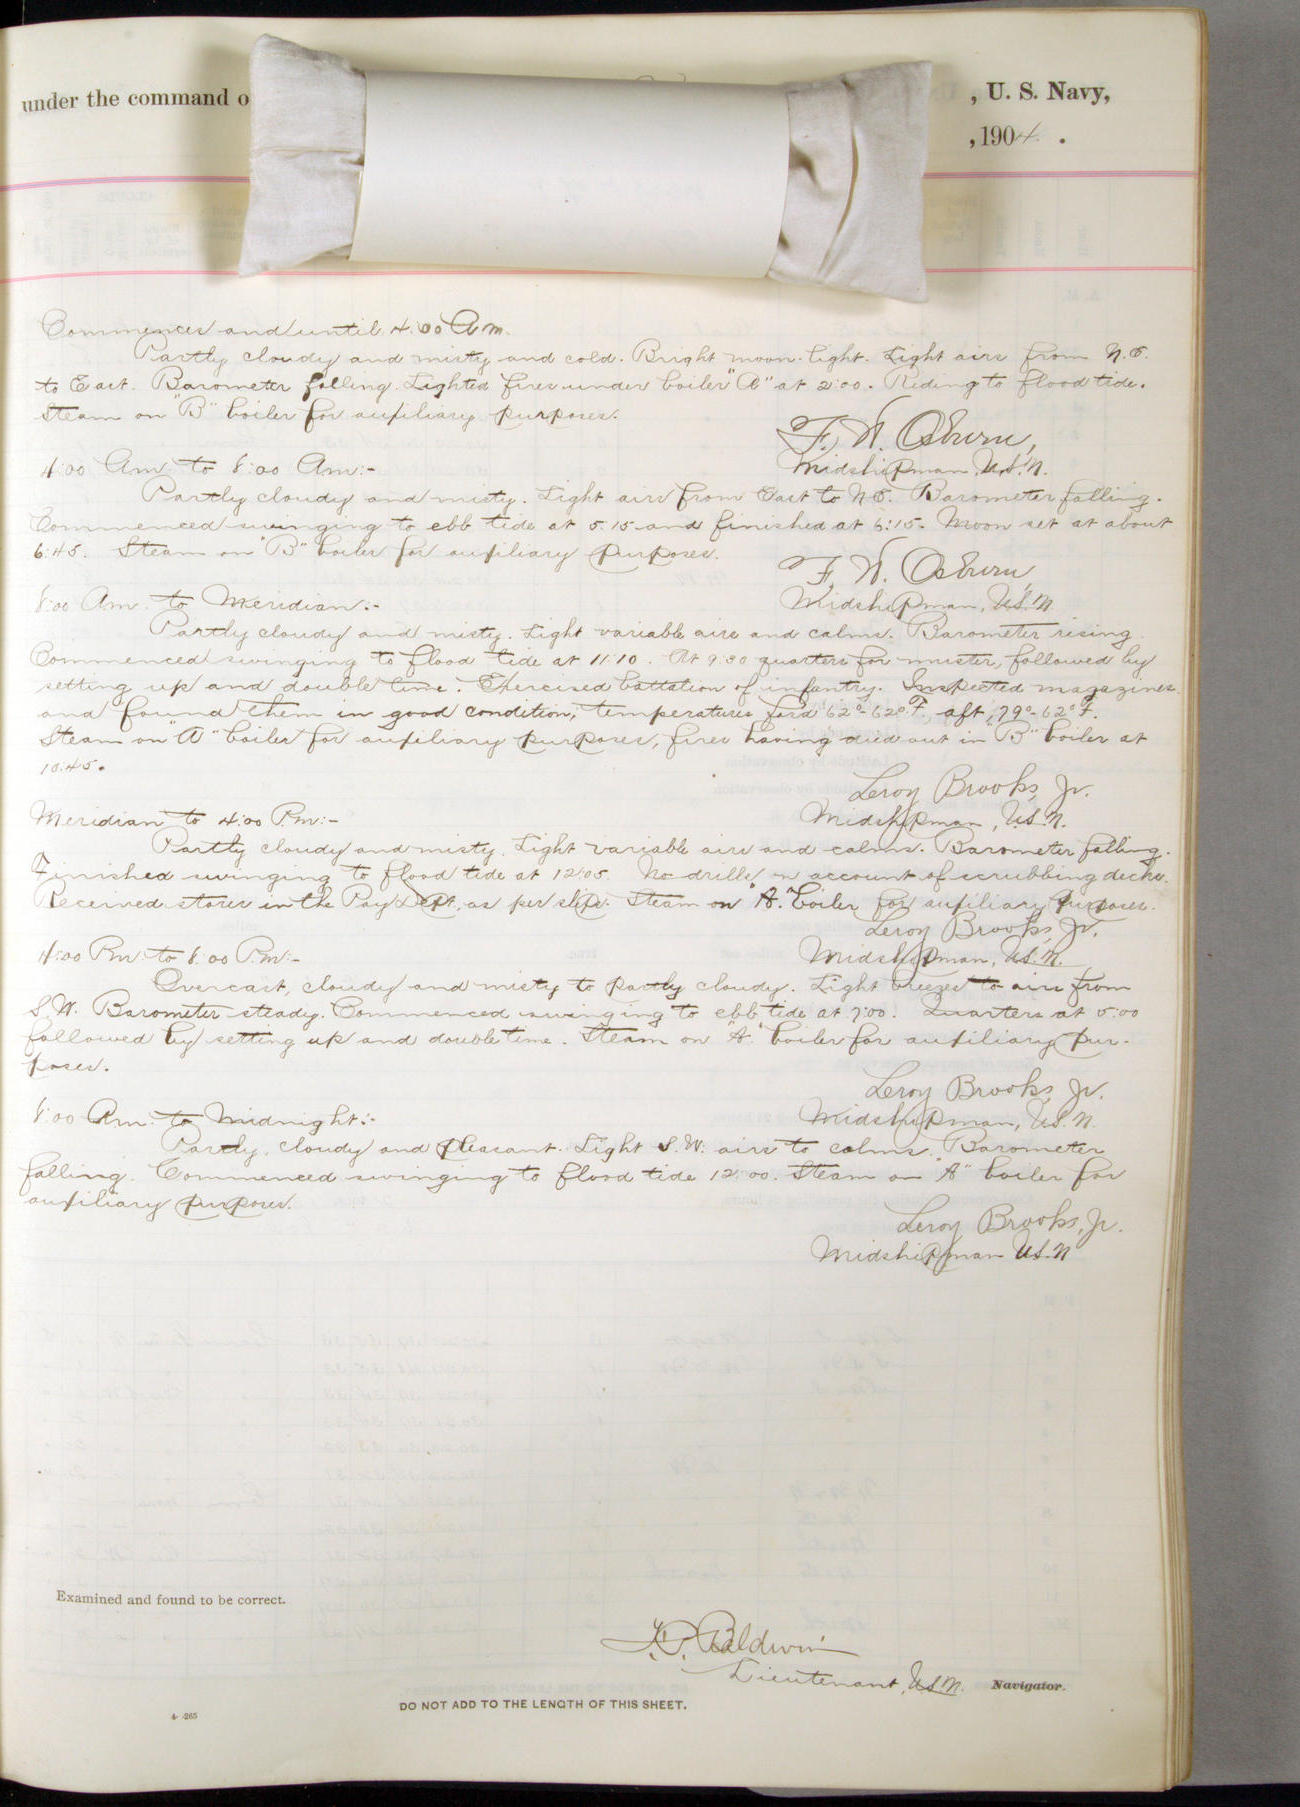 under the command o , U. S. Navy,
, 1904.
Commences and until 4:00 Am.
Partly cloudy and misty and cold. Bright moon-light. Light airs from N.E.
to East. Barometer falling. Lighted fires under boiler "A" at 2:00. Riding to flood tide.
Steam on "B" boiler for auxiliary purposes.
F. W. Osburn,
Midshipman, U.S.N.
4:00 Am. to 8:00 Am:-
Partly cloudy and misty. Light airs from East to N.E. Barometer falling.
Commenced swinging to ebb tide at 5:15 and finished at 6:15. Moon set at about
6:45. Steam on "B" boiler for auxiliary purposes.
F. W. Osburn
Midshipman, U.S.N.
8:00 Am. to Meridian:-
Partly cloudy and misty. Light variable airs and calms. Barometer rising.
Commenced swinging to flood tide at 11:10. At 9:30 quarters for muster, followed by
setting up and double time. Exercised battalion of infantry. Inspected magazines
and found them in good condition, temperatures for'd 62°-62°F., aft, 79°-62°F.
Steam on "A" boiler for auxiliary purposes, fires having died out in "B" boiler at
10:45.
Leroy Brooks, Jr.
Midshipman, U.S.N.
Meridian to 4:00 P.m:-
Partly cloudy and misty. Light variable airs and calms. Barometer falling.
Finished swinging to flood tide at 12:05. No drills on account of scrubbing decks.
Received stores in the Pay Dept. as per slip. Steam on "A" boiler for auxiliary purposes.
Leroy Brooks, Jr.
Midshipman, U.S.N.
4:00 Pm. to 8:00 P.m:-
Overcast, cloudy and misty to partly cloudy. Light breezes to airs from
S.W. Barometer steady. Commenced swinging to ebb tide at 7:00. Quarters at 5:00
followed by setting up and double time. Steam on "A" boiler for auxiliary pur-
poses.
Leroy Brooks, Jr.
Midshipman, U.S.N.
8:00 Pm. to Midnight:-
Partly cloudy and pleasant. Light S.W. airs to calms. Barometer
falling. Commenced swinging to flood tide 12:00. Steam on "A" boiler for
auxiliary purposes.
Leroy Brooks, Jr.
Midshipman U.S.N
Examined and found to be correct.
Baldwin
Lieutenant, U.S.N. Navigator.
DO NOT ADD TO THE LENGTH OF THIS SHEET.